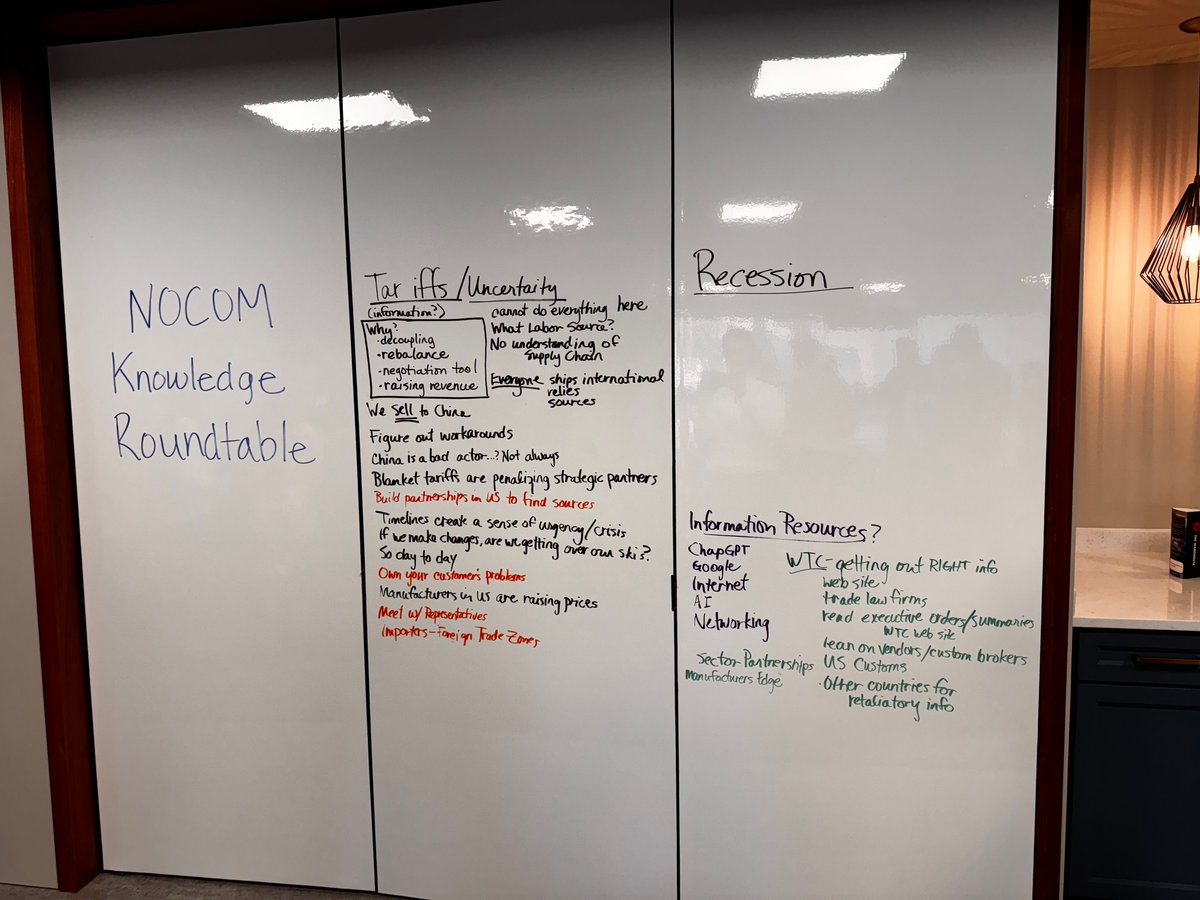 NOCOM
Knowledge
Roundtable
Tariffs/Uncertaity
(information?)
Why?
·decoupling
·rebalance
·negotiation tool
·raising revenue
cannot do everything here
What Labor Source?
No understanding of
Supply Chain
Everyone ships international
relies
sources
We sell to China
Figure out workarounds
China is a bad actor...? Not always
Blanket tariffs are penalizing strategic partners
Build partnerships in US to find sources
Timelines create a sense of urgency/crisis
If we make changes, are we getting over our skis?
So day to day
Own your customer's problems
Manufacturers in US are raising prices
Meet w/ Representatives
Importers-Foreign Trade Zones
Recession
Information Resources?
ChapGPT
Google
Internet
AI
Networking
Sector Partnerships
Manufacturers Edge
WTC-getting out RIGHT info
web site
trade law firms
read executive orders/summaries
WTC web site
lean on vendors/custom brokers
US Customs
·Other countries for
retaliatory info